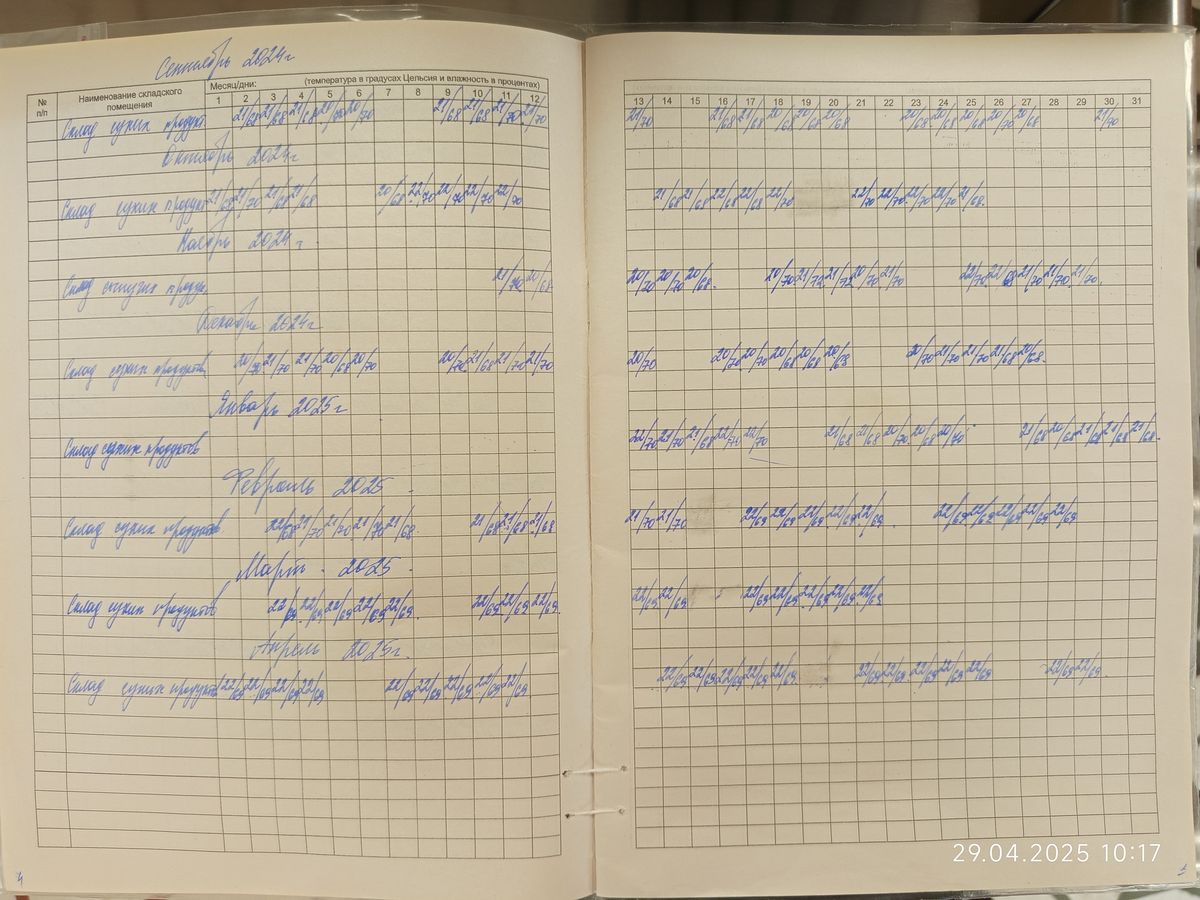 Сентябрь 2024г
№ п/п Наименование складского помещения Месяц/дни: (температура в градусах Цельсия и влажность в процентах)
1 2 3 4 5 6 7 8 9 10 11 12 13 14 15 16 17 18 19 20 21 22 23 24 25 26 27 28 29 30 31
Склад сухих продукт 21/68 21/68 21/68 20/70 20/70 21/68 21/68 21/70 21/70 21/70 21/68 21/68 20/68 20/68 20/68 20/68 20/68 20/68 20/70 20/68 21/70
Октябрь 2024г
Склад сухих продукт 21/70 21/68 21/68 20/68 22/70 22/70 22/70 22/70 21/68 21/68 22/68 22/68 22/70 22/70 22/70 22/70 22/70 21/68
Ноябрь 2024г.
Склад сыпучих продук. 21/70 20/68 20/70 20/70 20/68 20/70 21/72 21/72 20/70 21/70 22/70 21/69 21/70 21/70 21/70
Декабрь 2024г
Склад сухих продуктов 20/70 21/70 21/70 20/68 20/70 20/70 21/68 21/70 21/70 20/70 20/70 20/70 20/68 20/68 20/68 20/70 21/70 21/70 21/68 20/68
Январь 2025г
Склад сухих продуктов 22/70 21/70 21/68 22/70 22/70 21/68 21/68 20/70 20/68 20/70 21/68 20/68 21/68 21/68 21/68
Февраль 2025.
Склад сухих продуктов 22/68 21/70 21/70 21/70 21/68 21/68 21/68 21/68 21/70 21/70 22/69 22/69 22/69 22/69 22/69 22/69 22/69 22/69 22/69 22/69
Март. 2025.
Склад сухих продуктов 22/69 22/69 22/69 22/69 22/69 22/69 22/69 22/69 22/69 22/69 22/69 22/69 22/69 22/69 22/69
Апрель 2025г.
Склад сухих продуктов 22/69 22/69 22/69 22/69 22/69 22/69 22/69 22/69 22/69 22/69 22/69 22/69 22/69 22/69 22/69 22/69 22/69 22/69 22/69 22/69 22/69
4
29.04.2025 10:17